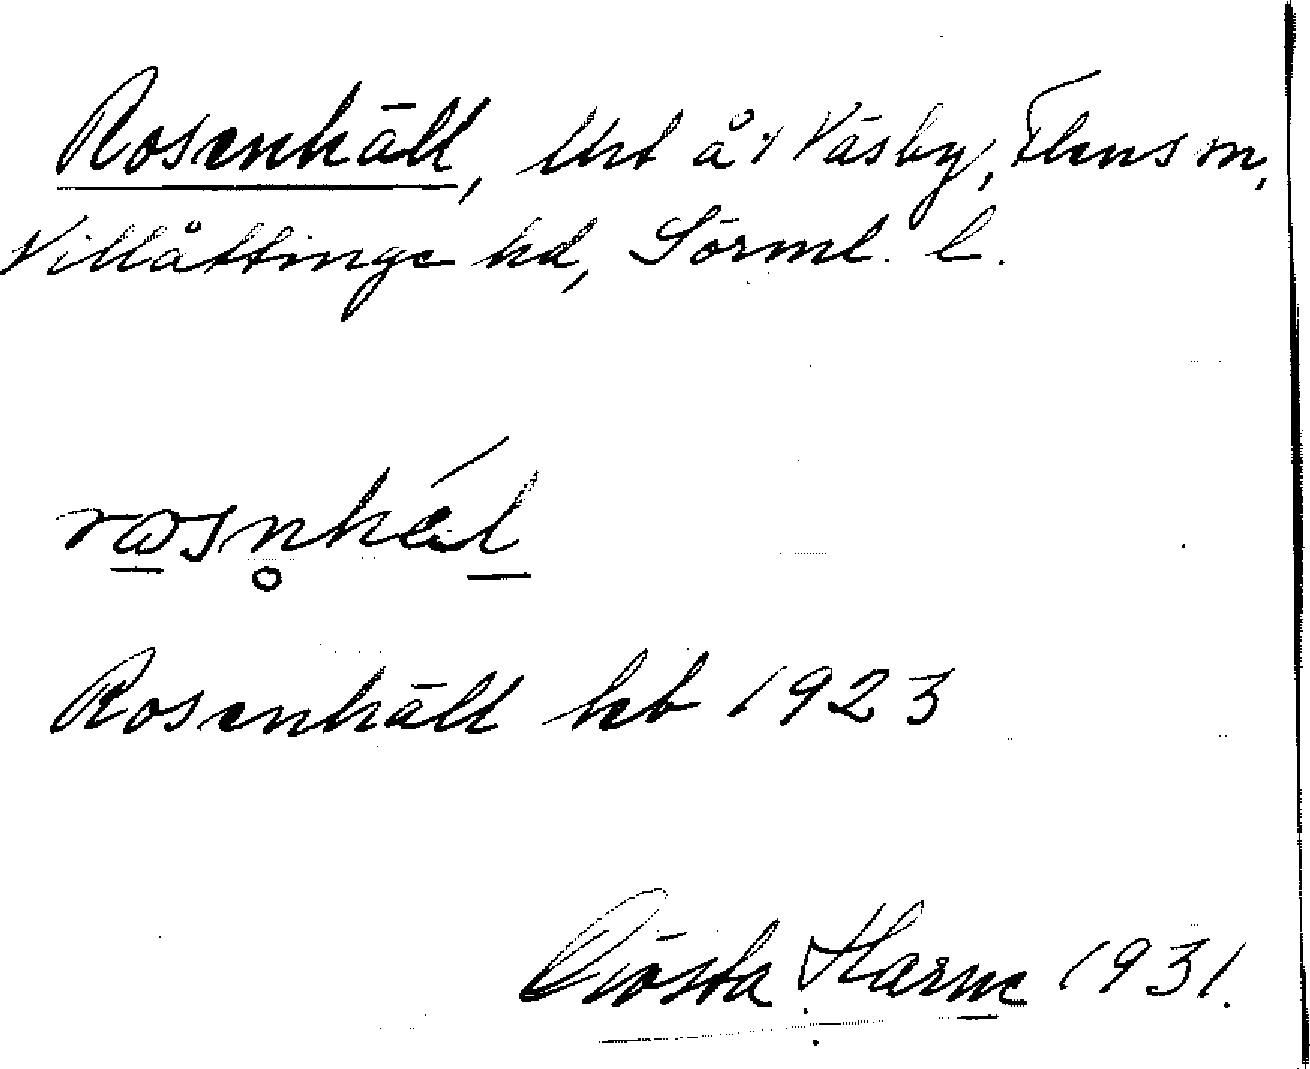 Rosenhäll, lht å Väsby, Flens sn,
Villåttinge hd, Sörml. l.
rosn̥hél
Rosenhäll kb 1923
Gösta Harne 1931.